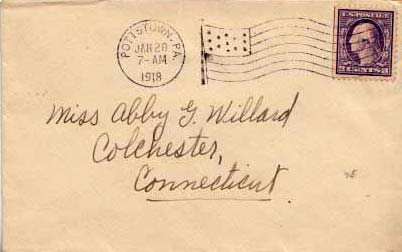 POTTSTOWN, PA.
JAN 28
7-AM
1918
U.S. POSTAGE
3 CENTS 3
Miss Abby G. Willard
Colchester,
Connecticut.